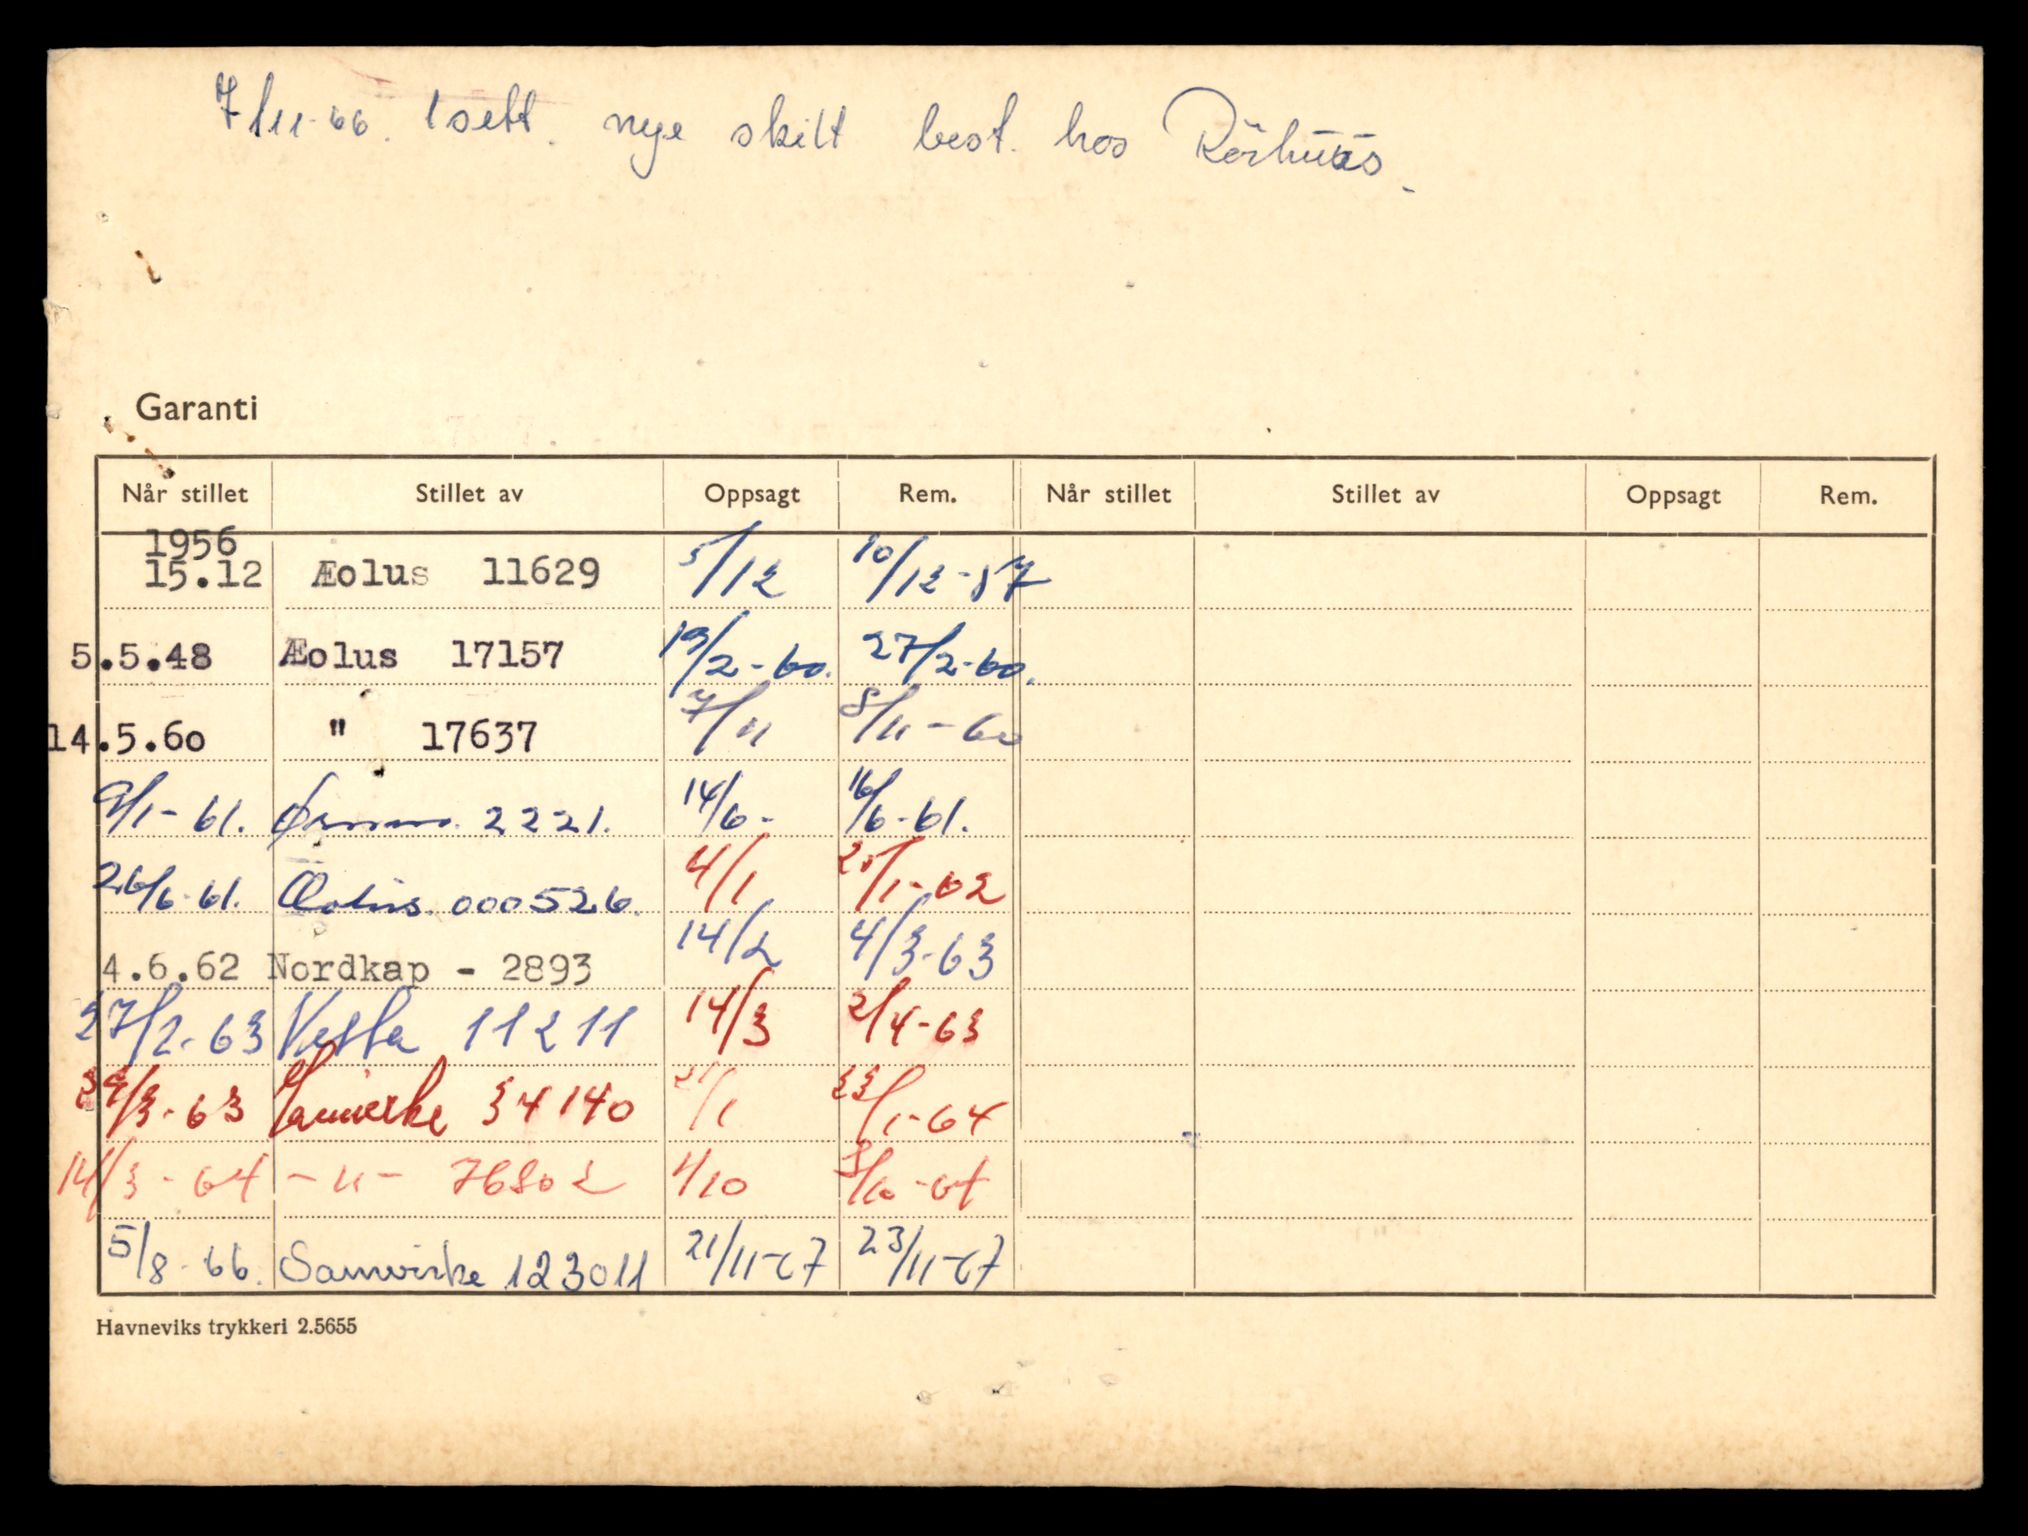 7/11-66. 1 sett. nye skilt best. hos
Garanti
Når stillet Stillet av Oppsagt Rem. Når stillet Stillet av Oppsagt Rem.
1956
15.12 Æolus 11629 5/12 10/12-57
5.5.48 Æolus 17157 19/2-60. 27/2-60.
14.5.60 " 17637 7/11 8/11-60
9/1-61. 2221. 14/6- 16/6-61.
26/6-61. Æolus. 000526. 4/1 /1-62
4.6.62 Nordkap - 2893 14/2 4/3-63
27/2-63 Vesta 11211 14/3 2/4-63
29/3-63 Samvirke 34140 /1 23/1-64
14/3-64 -"- 76802 /10 /10-64
5/8-66. Samvirke 123011 21/11-67 23/11-67
Havneviks trykkeri 2.5655